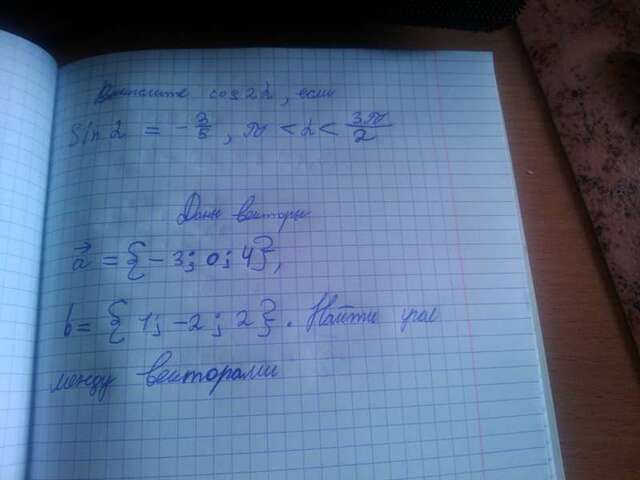 Вычислите cos 2α, если
sin α = -3/5, π < α < 3π/2
Даны векторы
a⃗ = {-3; 0; 4},
b = {1; -2; 2}. Найти угол
между векторами